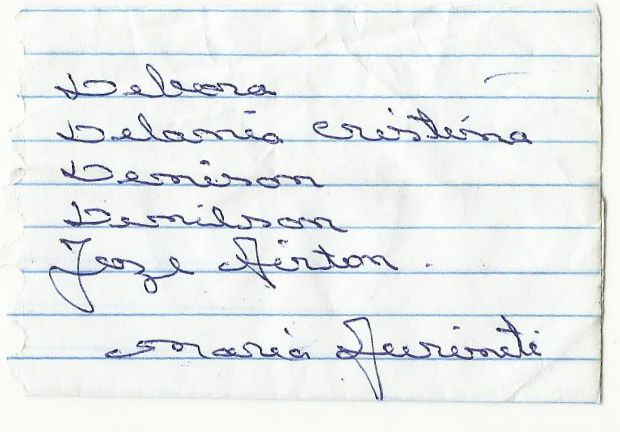 Debora
Delania Cristina
Demison
Demilson
Joze Airton.
Maria Aurineti